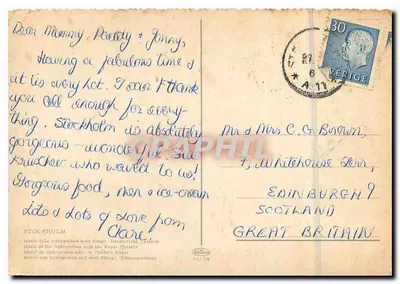 Dear Mummy, Daddy & Jenny,
Having a fabulous time &
it is very hot. I can't thank
you all enough for every-
thing. Stockholm is absolutely
gorgeous - wonderful. Saw
Kruschev who waved to us!
Gorgeous food, men & ice-cream
Lots & Lots of Love from
Clare.
STOCKHOLM
30
SVERIGE
27
6
* A 11 *
Mr & Mrs C. G. Brown,
7, Whitehouse Terr,
EDINBURGH 9
SCOTLAND
GREAT BRITAIN
DELCAMPHIL